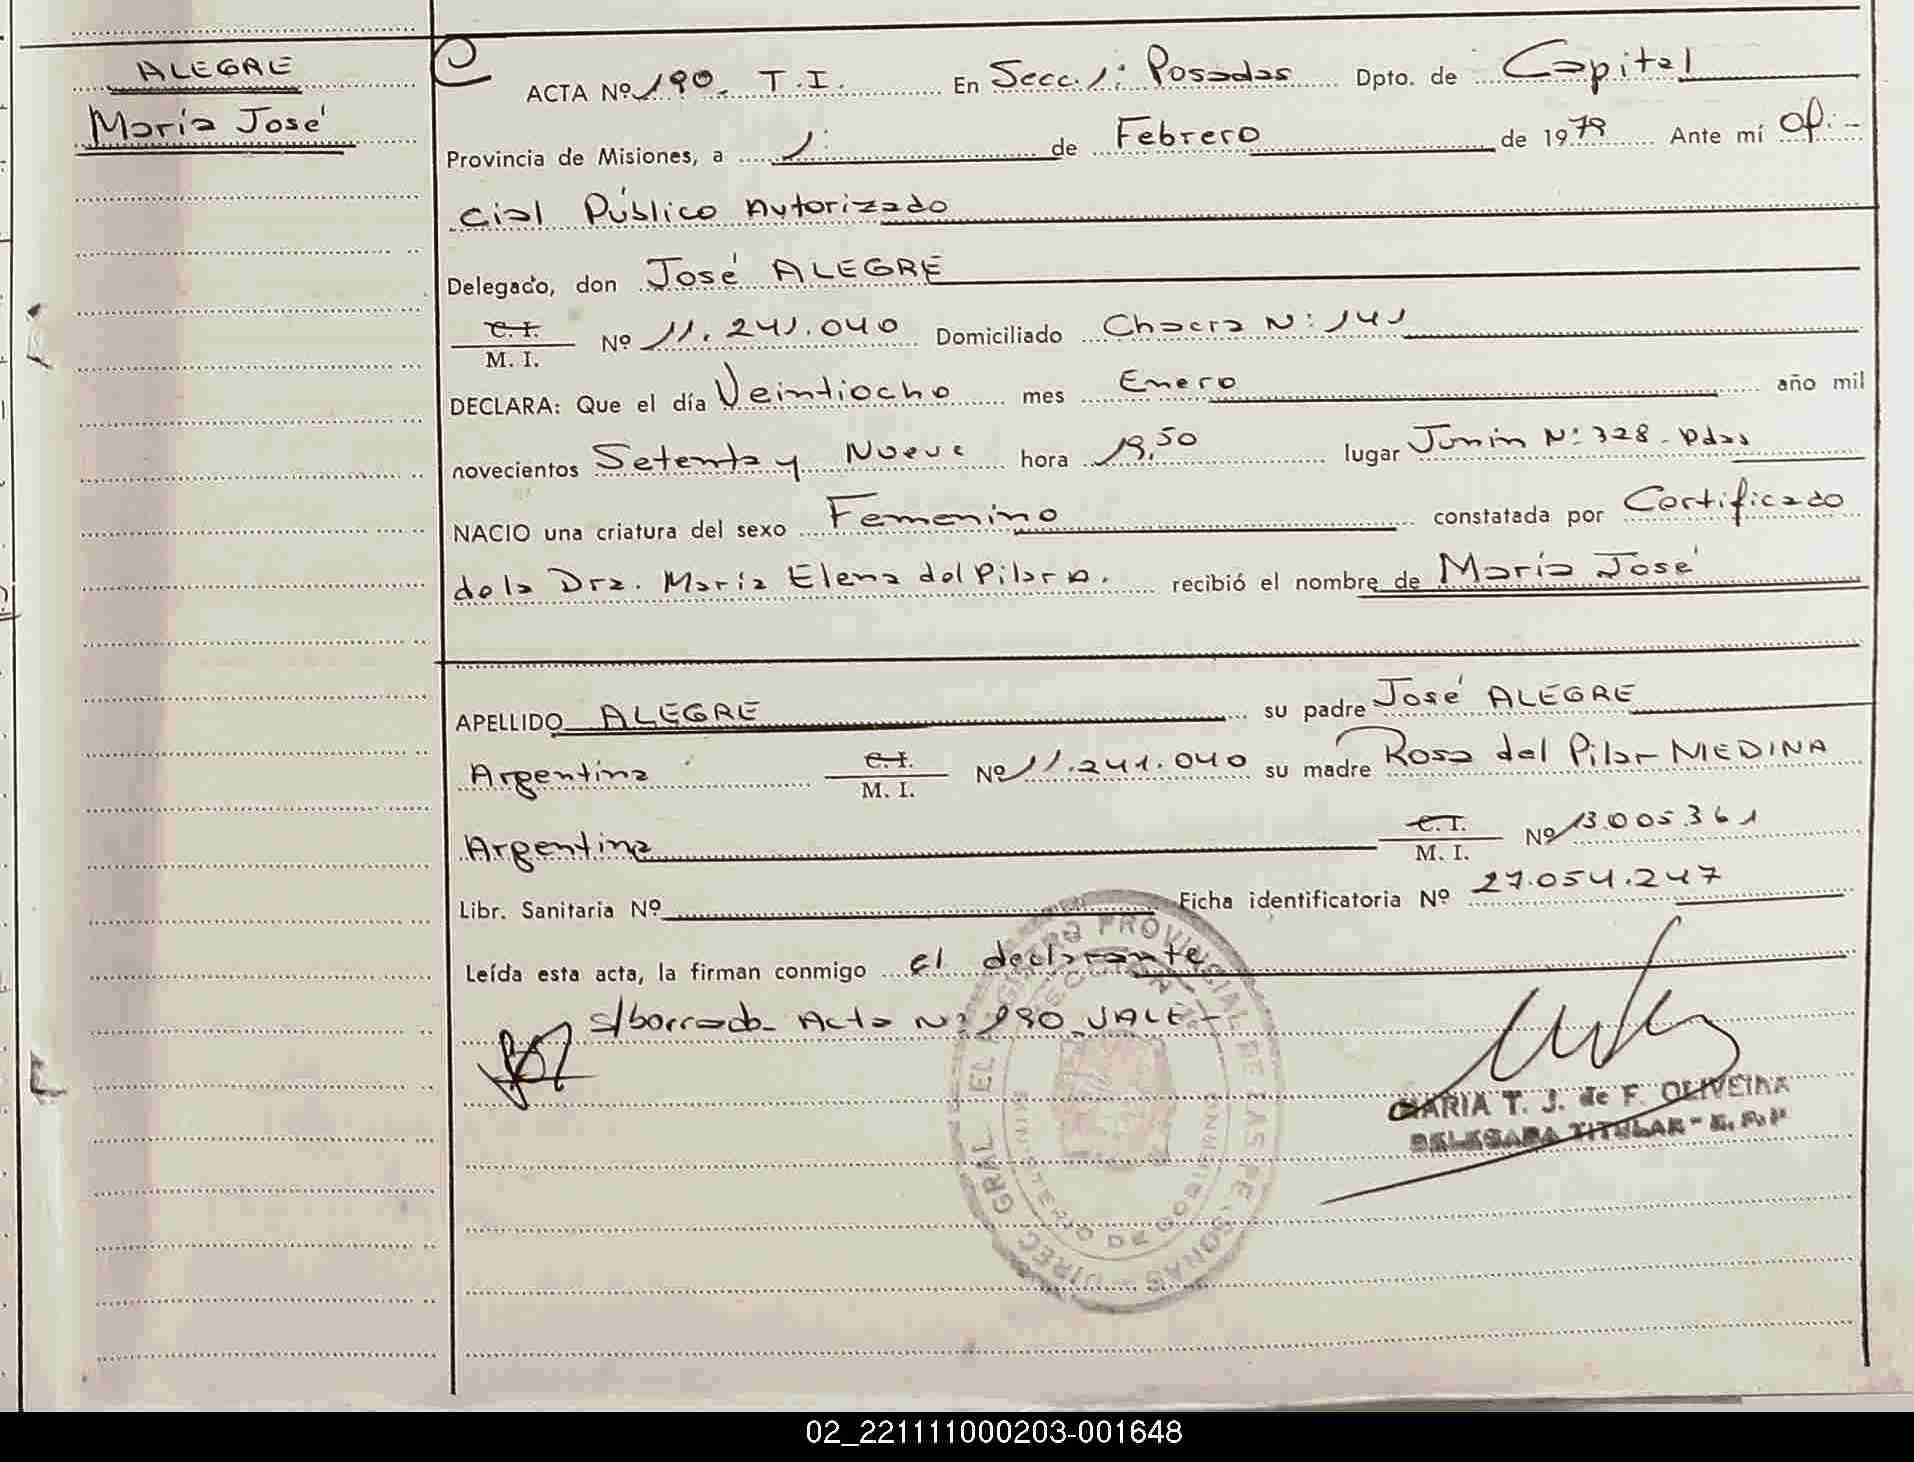 ALEGRE
María José
ACTA Nº 190. T.I. En Secc. 1: Posadas Dpto. de Capital
Provincia de Misiones, a 1: de Febrero de 1979 Ante mí Ofi-
cial Público Autorizado
Delegado, don José ALEGRE
C. I.
M. I. Nº 11.241.040 Domiciliado Chacra N: 141
DECLARA: Que el día Veintiocho mes Enero año mil
novecientos Setenta y Nueve hora 19,50 lugar Junín N: 328 - Pdas
NACIO una criatura del sexo Femenino constatada por Certificado
de la Dra. María Elena del Pilar A. recibió el nombre de María José
APELLIDO ALEGRE su padre José ALEGRE
Argentina C. I. M. I. Nº 11.241.040 su madre Rosa del Pilar MEDINA
Argentina C. I. M. I. Nº 13.005.361
Libr. Sanitaria Nº Ficha identificatoria Nº 27.054.247
Leída esta acta, la firman conmigo el declarante
s/borrado - Acta N: 190 - VALE -
MARIA T. J. de F. OLIVEIRA
DELEGADA TITULAR - E. R. P
DIREC. GRAL. EL REGISTRO PROVINCIAL DE LAS PERSONAS -
MINISTERIO DE GOBIERNO
02_221111000203-001648